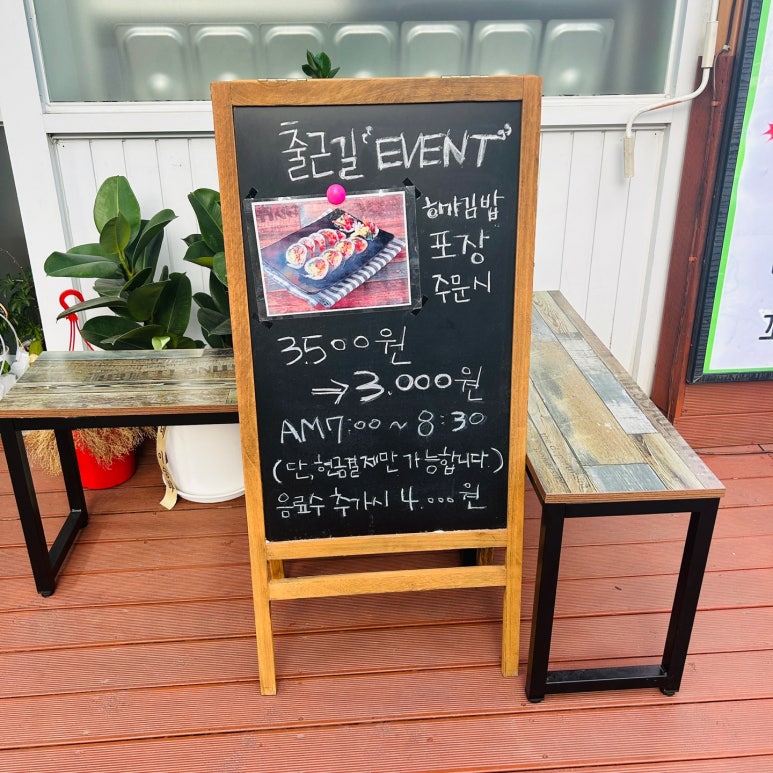 출근길 "EVENT"
하마김밥
포장
주문시
3.500원
⇒ 3.000원
AM7:00 ~ 8:30
(단, 현금결제만 가능합니다.)
음료수 추가시 4.000원